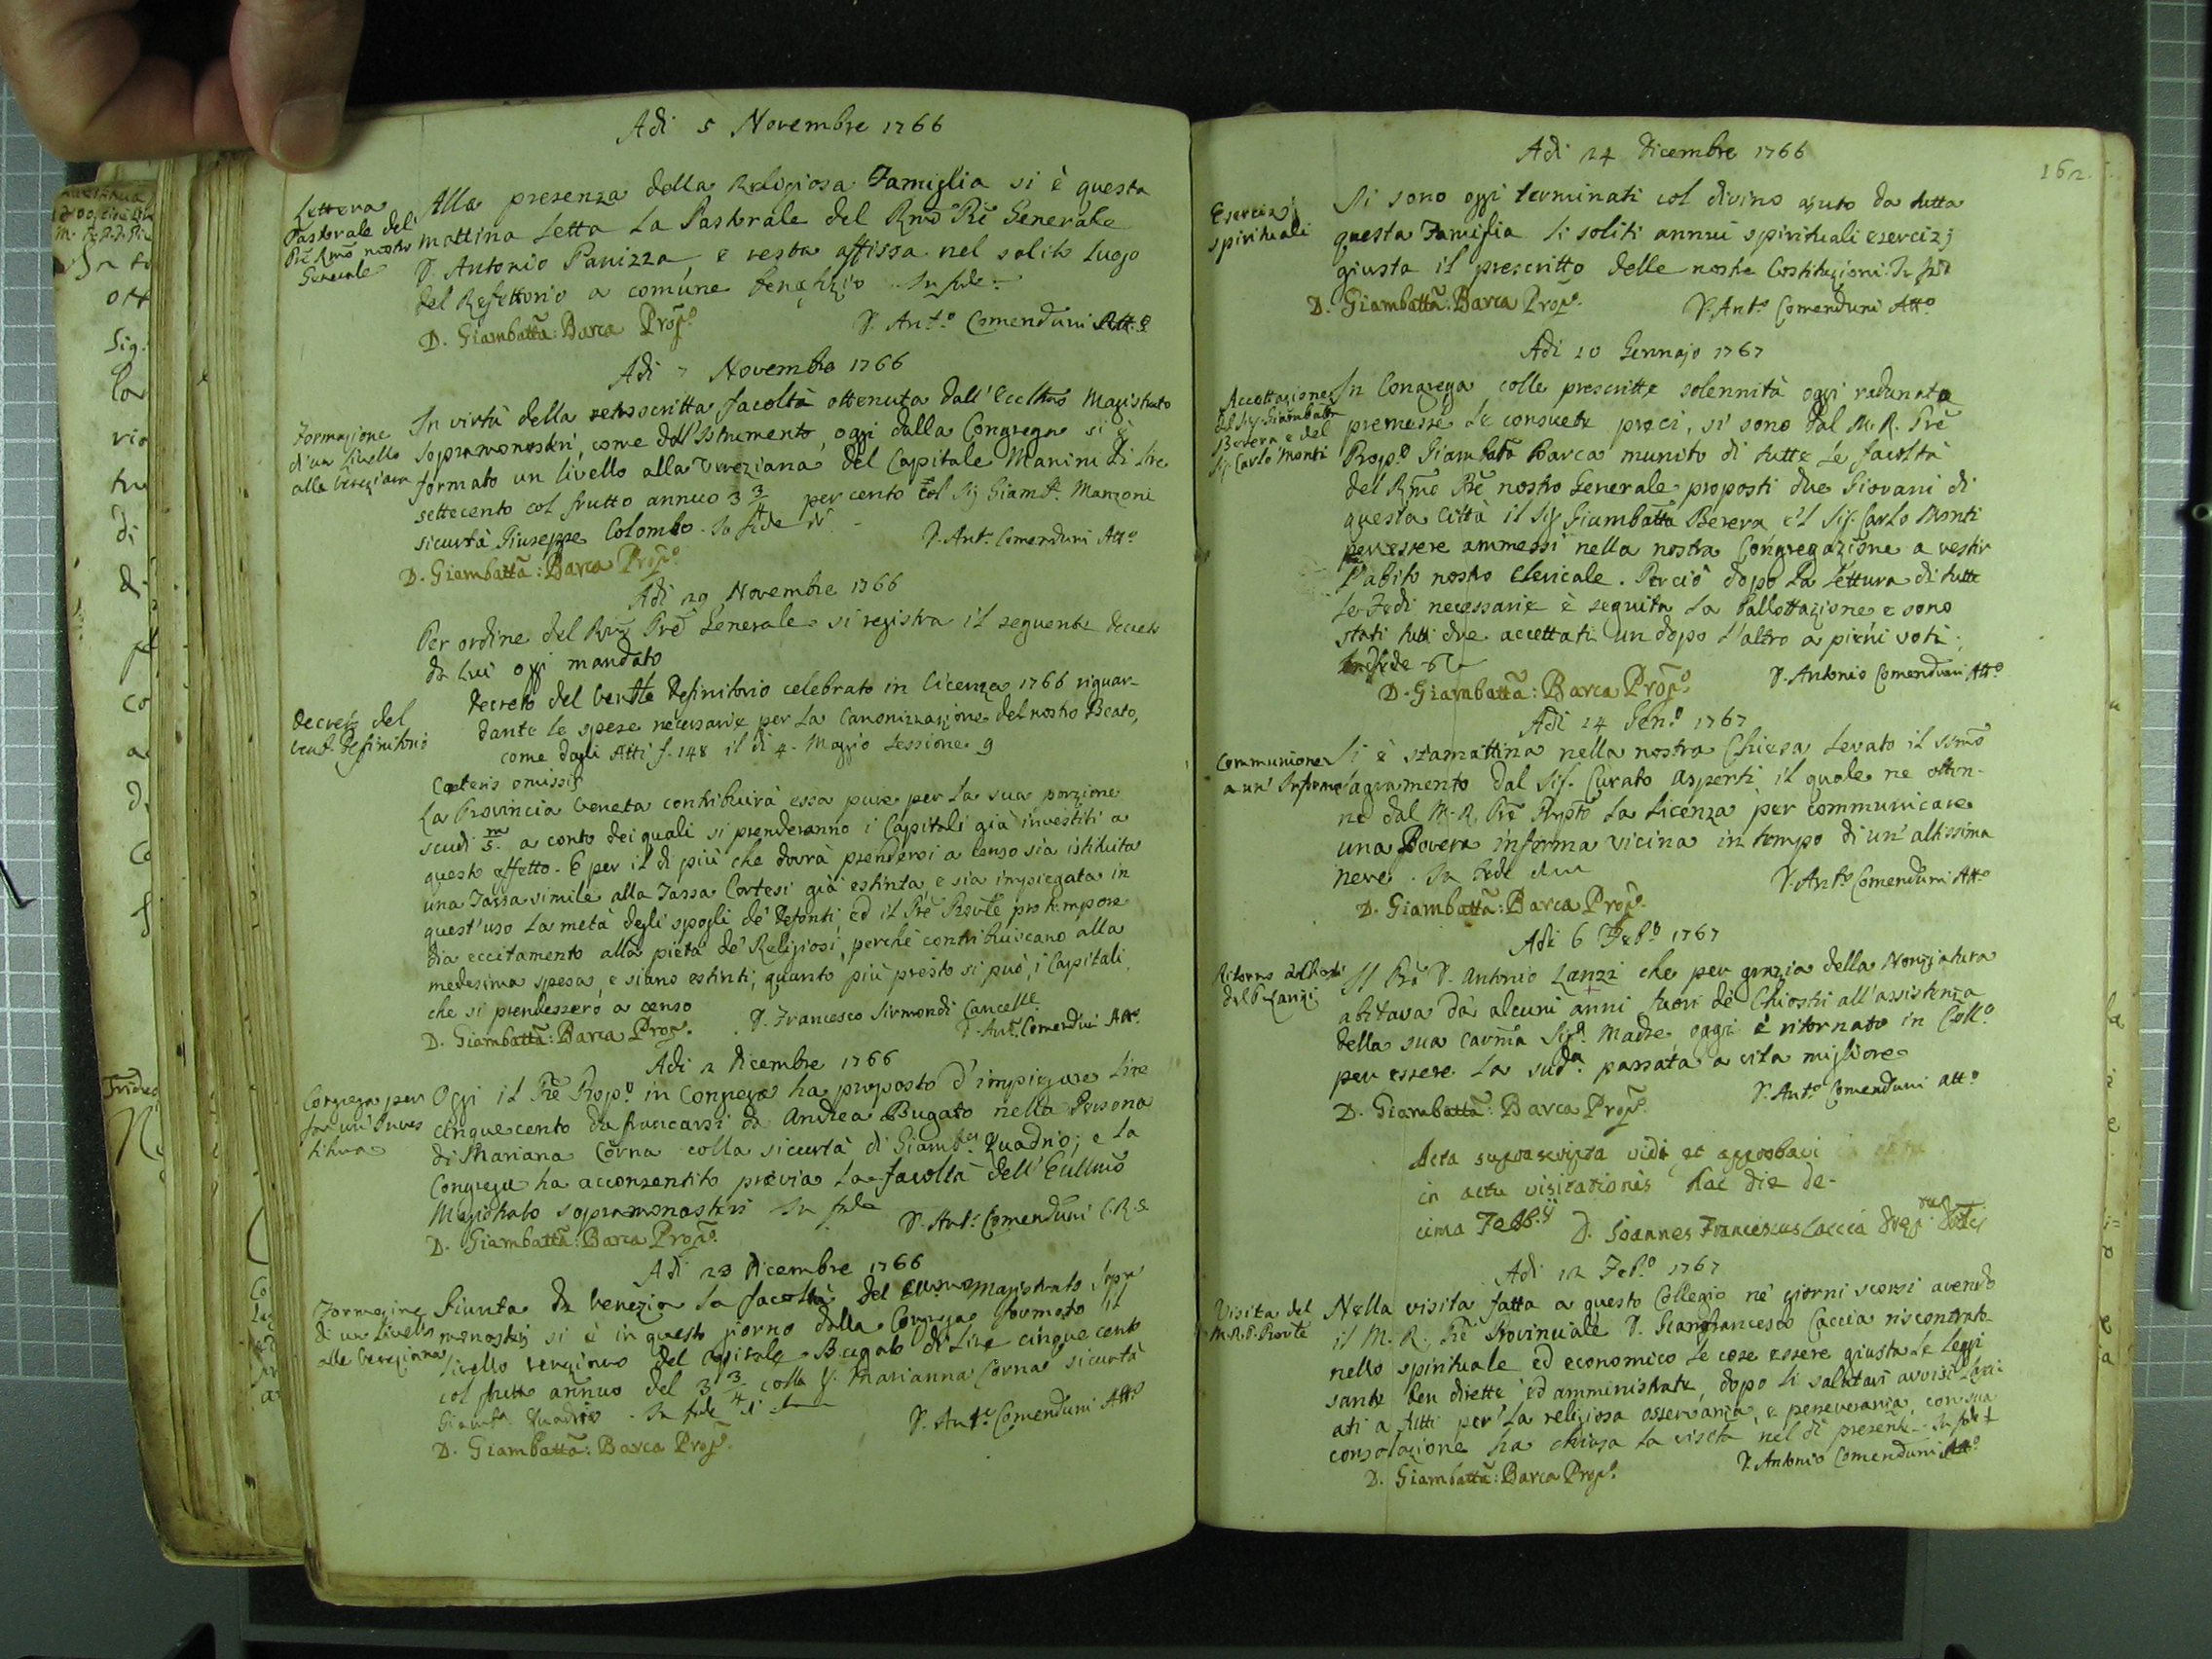 Adi 5 Novembre 1766
Lettera
Pastorale del
Prē Rmō nostro
Generale
Alla presenza della Religiosa Famiglia si è questa
mattina letta la Pastorale del Rmō Prē Generale
D. Antonio Panizza, e resta affissa nel solito luogo
del Refettorio a comune benefizio. In fede
D. Giambattā: Barca Propō.
D. Antº. Comenduni Attº.
Adi 7 Novembre 1766
Formazione
d'un livello
alla Veneziana
In virtù della retroscritta facoltà ottenuta dall'Eccllmō Magistrato
Sopramonasterj, come dall'Istrumento, oggi dalla Congrega si è
formato un livello alla Veneziana del Capitale Manini di lire
settecento col frutto annuo 3 3/4 per cento col Sig Giamb. Manzoni
sicurtà Giuseppe Colombo. In fede
D. Giambattā: Barca Propō.
D. Antº. Comenduni Attº
Adi 29 Novembre 1766
Per ordine del Rmō Prē Generale si registra il seguente decreto
da lui oggi mandato
Decreto del
Ven. Definitorio
Decreto del Ven Definitorio celebrato in Vicenza 1766 riguar-
dante le spese necessarie per la Canonizzazione del nostro Beato,
come dagli Atti f. 148 il dì 4. Maggio Sessione 9
Caeteris omissis
La Provincia Veneta contribuirà essa pure per la sua porzione
scudi 5m. a conto dei quali si prenderanno i Capitali già investiti a
questo effetto. E per il di più che dovrà prendersi a censo sia istituita
una Tassa simile alla Tassa Cortesi già estinta, e sia impiegata in
quest'uso la metà degli spogli de' Defonti, ed il Prē Provle pro tempore
dia eccitamento alla pietà de' Religiosi, perchè contribuiscano alla
medesima spesa, e siano estinti, quanto più presto si può, i Capitali,
che si prendessero a censo
D. Francesco Sirmondi Cancelle
D. Giambattā: Barca Propō.
D. Antº. Comenduni Attº.
Adi 2 Dicembre 1766
Congrega per
far un' Inves
titura
Oggi il Prē Propº in Congrega ha proposto d'impiegare lire
cinquecento da francarsi da Andrea Bugato nella Persona
di Mariana Corna colla sicurtà di Giambā. Quadrio; e la
Congrega ha acconsentito previa la facoltà dell'Eccllmō
Magistrato sopramonasteri In fede
D. Giambattā: Barca Propō.
D. Antº. Comenduni C.R.S.
Adi 23 Dicembre 1766
Formazione
di un Livello
alla Veneziana
Giunta da Venezia la facoltà del Magistrato Sopra
monasterj si è in questo giorno dalla Congrega formato il
livello veneziano del Capitale Bugato di Lire cinquecento
col frutto annuo del 3 3/4 colla S. Marianna Corna sicurtà
Giambā. Quadrio. In fede
D. Giambattā: Barca Propō.
D. Antº. Comenduni Attº
162.
Adi 24 Dicembre 1766
Esercizj
spirituali
Si sono oggi terminati col divino ajuto da tutta
questa Famiglia li soliti annui spirituali esercizj
giusta il prescritto delle nostre Costituzioni. In fede
D. Giambattā: Barca Propō.
D. Antº. Comenduni Attº
Adi 10 Gennajo 1767
Accettazione
del Sig. Giambattā
Berera e del
Sig. Carlo Monti
In Congrega colle prescritte solennità oggi radunata
premesse le consuete preci, si sono dal M. R. Prē
Propº Giambattā Barca munito di tutte le facoltà
del Rmō Prē nostro Generale, proposti due Giovani di
questa Città il Sig Giambattā Berera e'l Sig. Carlo Monti
per essere ammessi nella nostra Congregazione a vestir
l'abito nostro Clericale. Perciò dopo la lettura di tutte
le Fedi necessarie è seguita la Ballottazione e sono
stati tutti due accettati un dopo l'altro a pieni voti.
In fede
D. Giambattā: Barca Propō.
D. Antonio Comenduni Attº
Adi 14 Genº 1767
Communione
a un' Inferma
Si è stamattina nella nostra Chiesa levato il Ssmō
Sagramento dal Sig. Curato Asperti, il quale ne otten-
ne dal M. R. Prē Prpstō la licenza per communicare
una Povera inferma vicina in tempo di un'altissima
neve. In fede
D. Giambattā: Barca Propō.
D. Antº. Comenduni Attº
Adi 6 Febº 1767
Ritorno
del P. Lanzi
Il Prē D. Antonio Lanzi che per grazia della Nonziatura
abitava da alcuni anni fuori de' Chiostri all'assistenza
della sua carmā Sigª Madre, oggi è ritornato in Collº
per essere la sudª. passata a vita migliore
D. Giambattā: Barca Propō.
D. Antº. Comenduni Attº
Acta suprascripta vidi et approbavi
in actu visitationis hac die de-
cima Febb.ij D. Joannes Franciscus Caccia
Adi 12 Febº 1767
Visita del
M.R.P. Provle
Nella visita fatta a questo Collegio nè giorni scorsi avendo
il M. R. Prē Provinciale D. Gianfrancesco Caccia riscontrato
nello spirituale ed economico le cose essere giusta le Leggi
sante ben dirette ed amministrate, dopo li salutari avvisi lasci
ati a tutti per la religiosa osservanza, e perseveranza, con sua
consolazione ha chiusa la visita nel dì presente. In fede
D. Giambattā: Barca Propō.
D. Antonio Comenduni Attº